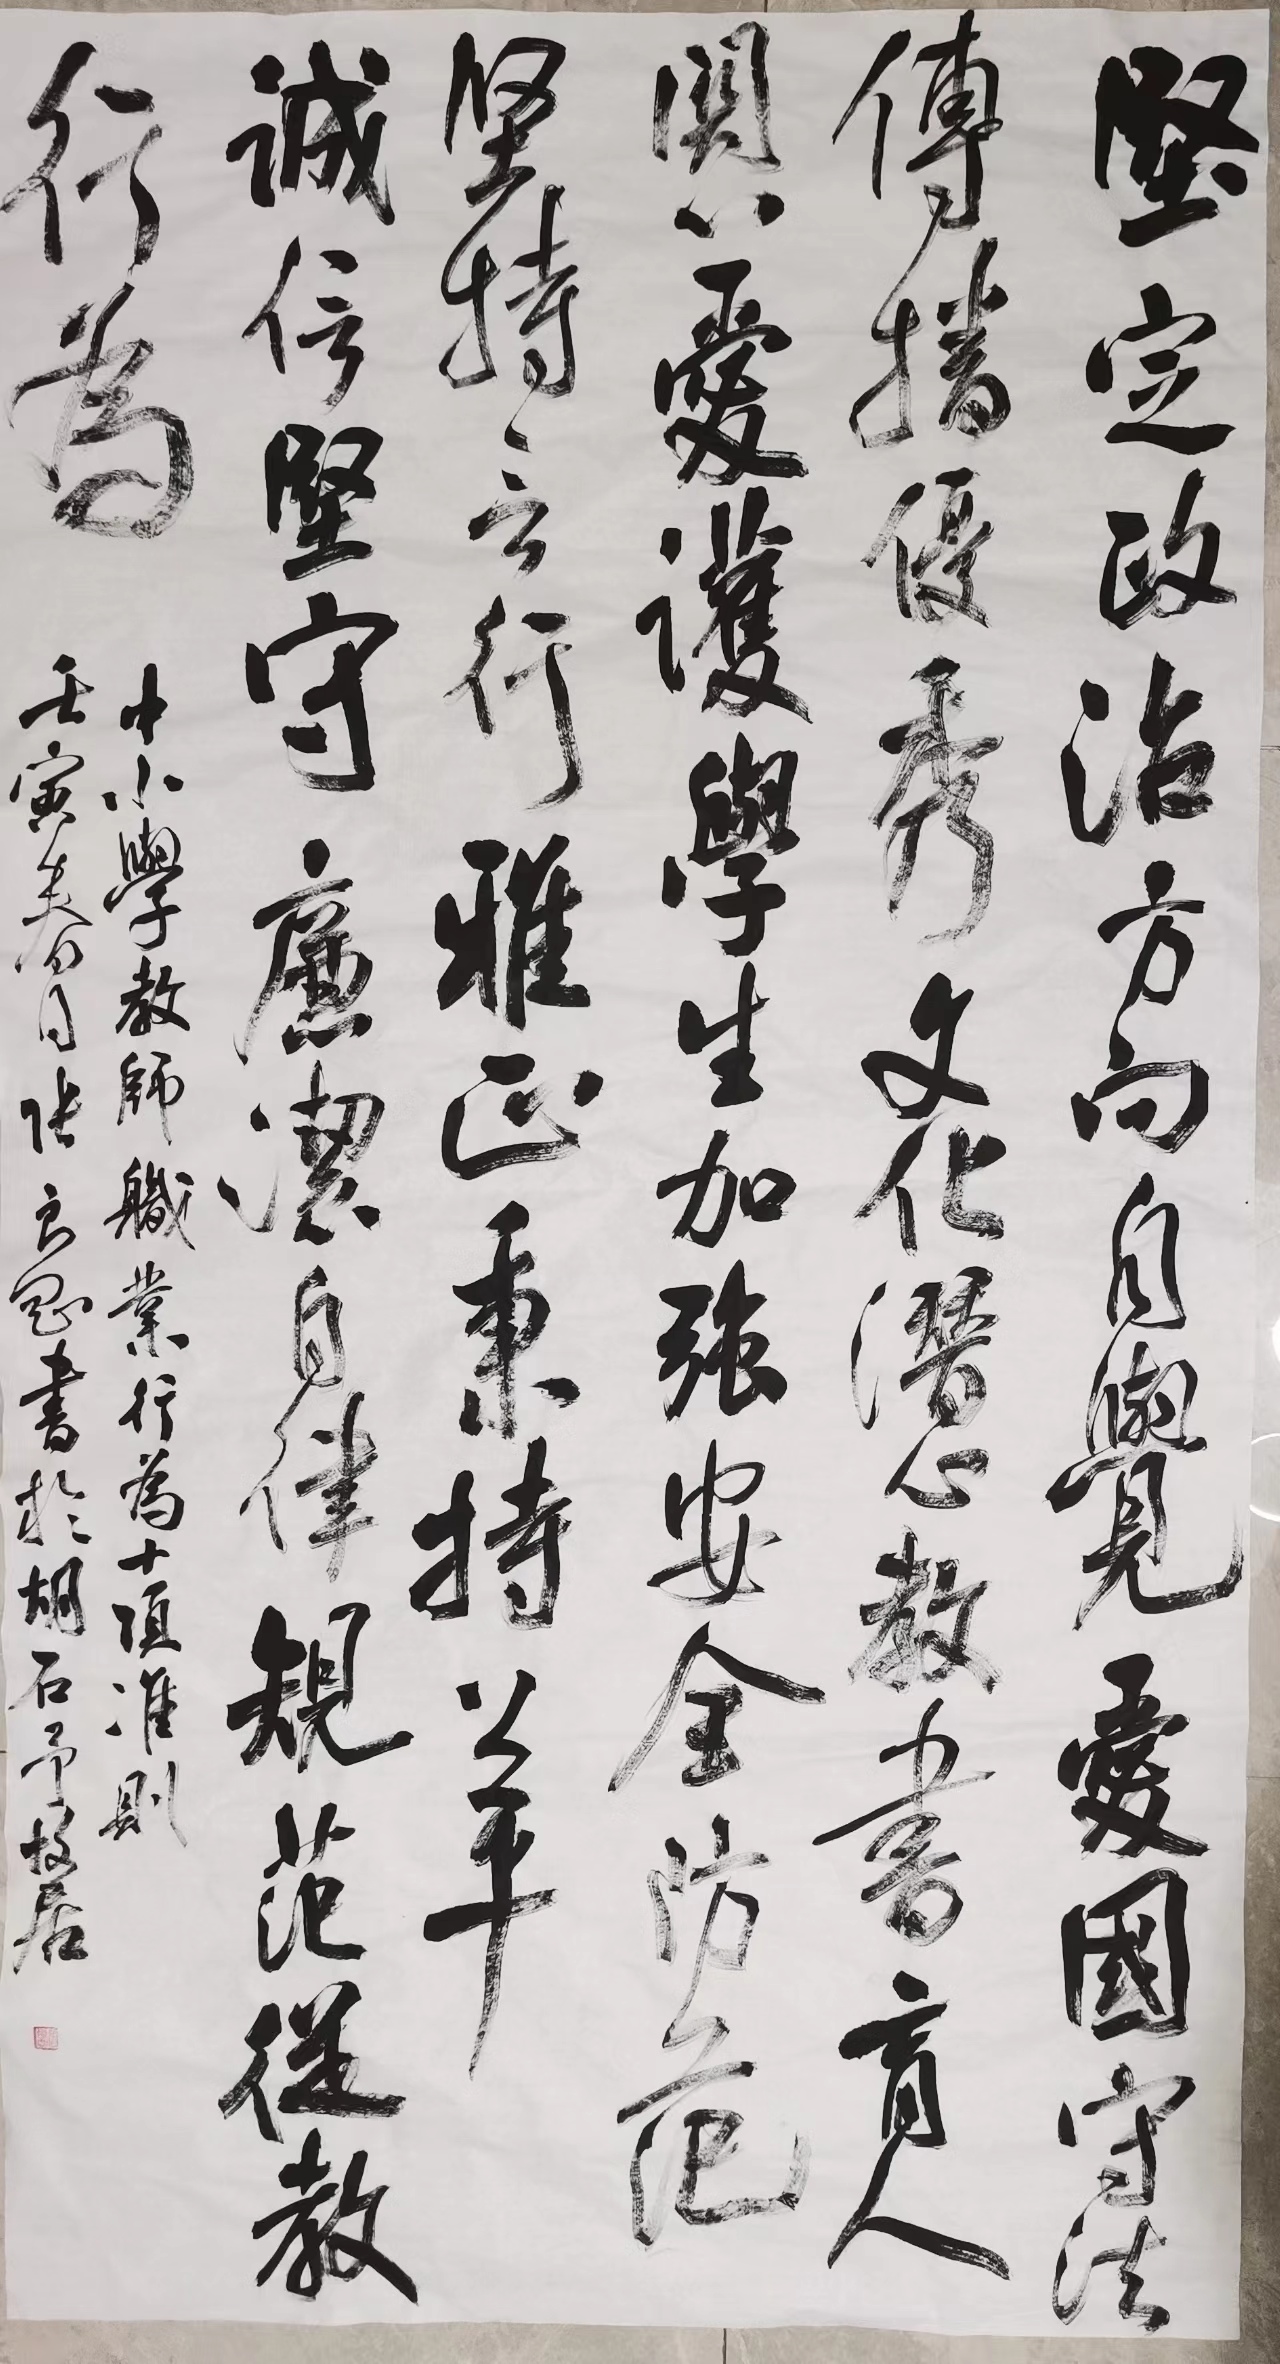 堅定政治方向自覺愛國守法
傳播優秀文化潛心教書育人
關心愛護學生加强安全防范
坚持言行雅正秉持公平
誠信堅守廉潔自律規范從教
行為
中小學教師職業行為十項准則
壬寅春日张良 書於胡石予故居